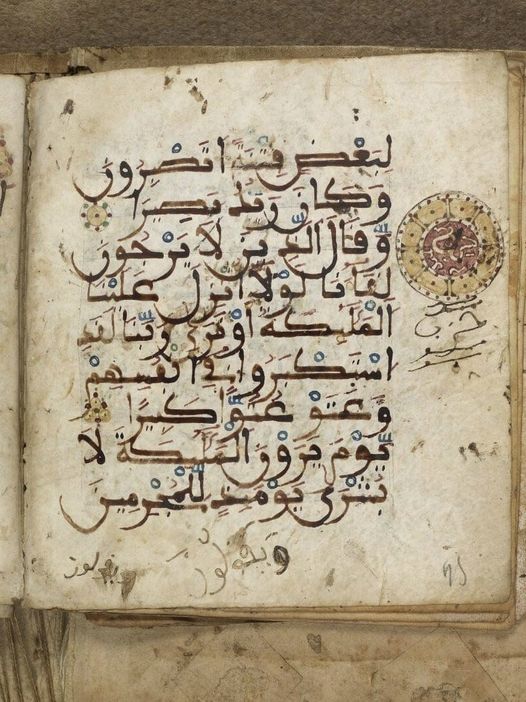 لبعض فتنة اتصبرون
وكان ربك بصيرا
وقال الذين لا يرجون
لقانا لولا انزل علينا
الملئكة او نرى ربنا لقد
استكبروا في انفسهم
وعتو عتوا كبيرا
يوم يرون الملئكة لا
بشرى يومئذ للمجرمين
ويقولون
ويقولون